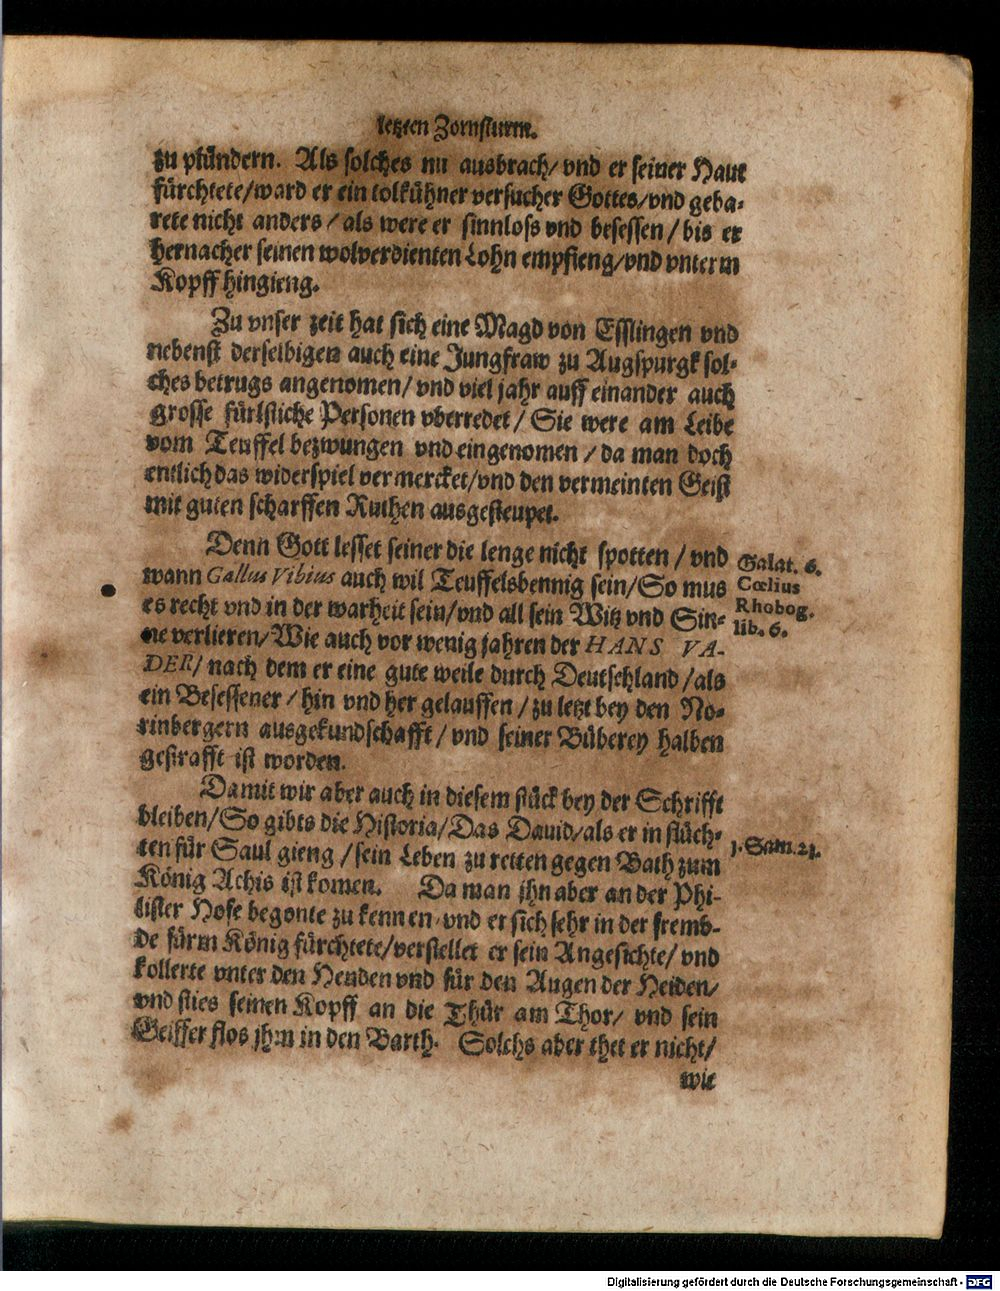 letzten Zornsturm.
zu plündern. Als solches nu ausbrach/ vnd er seiner Haut
fürchtete/ward er ein tolkühner versucher Gottes/vnd geba-
rete nicht anders / als were er sinnloss vnd besessen / bis er
hernacher seinen wolverdienten Lohn empfieng/vnd vnterm
Kopff hingieng.
Zu vnser zeit hat sich eine Magd von Esslingen vnd
nebenst derselbigen auch eine Jungfraw zu Augspurgk sol-
ches betrugs angenomen/ vnd viel jahr auff einander auch
grosse fürstliche Personen vberredet / Sie were am Leibe
vom Teuffel bezwungen vnd eingenomen / da man doch
entlich das widerspiel vermercket/vnd den vermeinten Geist
mit guten scharffen Ruthen ausgesteupet.
Denn Gott lesset seiner die lenge nicht spotten / vnd
wann Gallus Vibius auch wil Teuffelsbennig sein/So mus
es recht vnd in der warheit sein/vnd all sein Witz vnd Sin-
ne verlieren/Wie auch vor wenig jahren der HANS VA-
DER/ nach dem er eine gute weile durch Deutschland /als
ein Besessener / hin vnd her gelauffen / zu letzt bey den No-
rinbergern ausgekundschafft / vnd seiner Büberey halben
gestrafft ist worden.
Galat. 6.
Cœlius
Rhobog.
lib. 6.
Damit wir aber auch in diesem stück bey der Schrifft
bleiben/So gibts die Historia/Das Dauid/als er in flüch-
ten für Saul gieng /sein Leben zu retten gegen Bath zum
König Achis ist komen. Da man jhn aber an der Phi-
lister Hofe begonte zu kennen vnd er sich sehr in der fremb-
de fürm König fürchtete/verstellet er sein Angesichte/ vnd
kollerte vnter den Henden vnd für den Augen der Heiden/
vnd sties seinen Kopff an die Thür am Thor/ vnd sein
Geiffer flos jhm in den Barth. Solchs aber thet er nicht/
1. Sam. 21.
wie
Digitalisierung gefördert durch die Deutsche Forschungsgemeinschaft - DFG